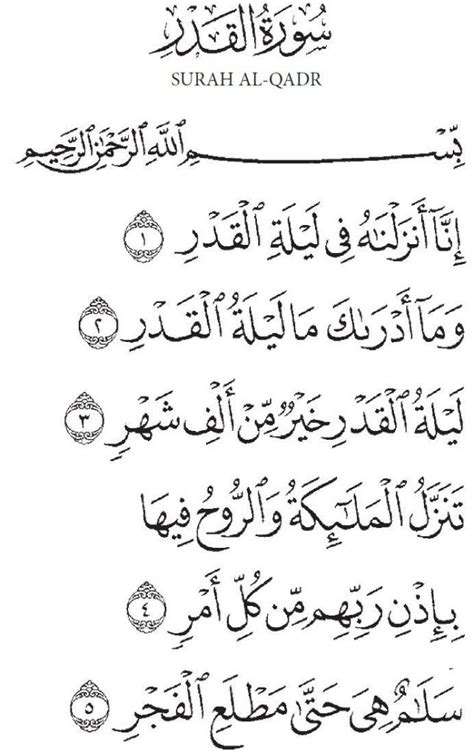 سُورَةُ الْقَدْرِ
SURAH AL-QADR
بِسْمِ ٱللَّهِ ٱلرَّحْمَٰنِ ٱلرَّحِيمِ
إِنَّآ أَنزَلْنَٰهُ فِى لَيْلَةِ ٱلْقَدْرِ ١
وَمَآ أَدْرَىٰكَ مَا لَيْلَةُ ٱلْقَدْرِ ٢
لَيْلَةُ ٱلْقَدْرِ خَيْرٌ مِّنْ أَلْفِ شَهْرٍ ٣
تَنَزَّلُ ٱلْمَلَٰٓئِكَةُ وَٱلرُّوحُ فِيهَا
بِإِذْنِ رَبِّهِم مِّن كُلِّ أَمْرٍ ٤
سَلَٰمٌ هِىَ حَتَّىٰ مَطْلَعِ ٱلْفَجْرِ ٥